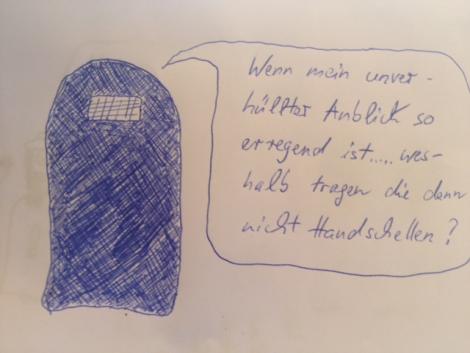 Wenn mein unver-
hüllter Anblick so
erregend ist..... wes-
halb tragen die dann
nicht Handschellen?